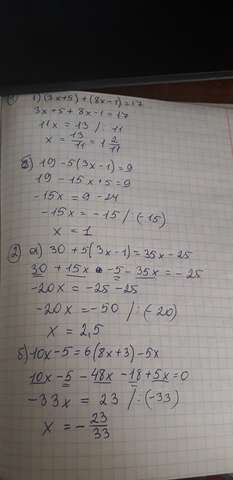 ① 1) (3x+5)+(8x-1)=17
3x+5+8x-1=17
11x=13 /:11
x=13/11=1 2/11
2) 19-5(3x-1)=9
19-15x+5=9
-15x=9-24
-15x=-15/:(-15)
x=1
② а) 30+5(3x-1)=35x-25
30+15x-5-35x=-25
-20x=-25-25
-20x=-50/:(-20)
x=2,5
б) 10x-5=6(8x+3)-5x
10x-5-48x-18+5x=0
-33x=23/:(-33)
x=-23/33